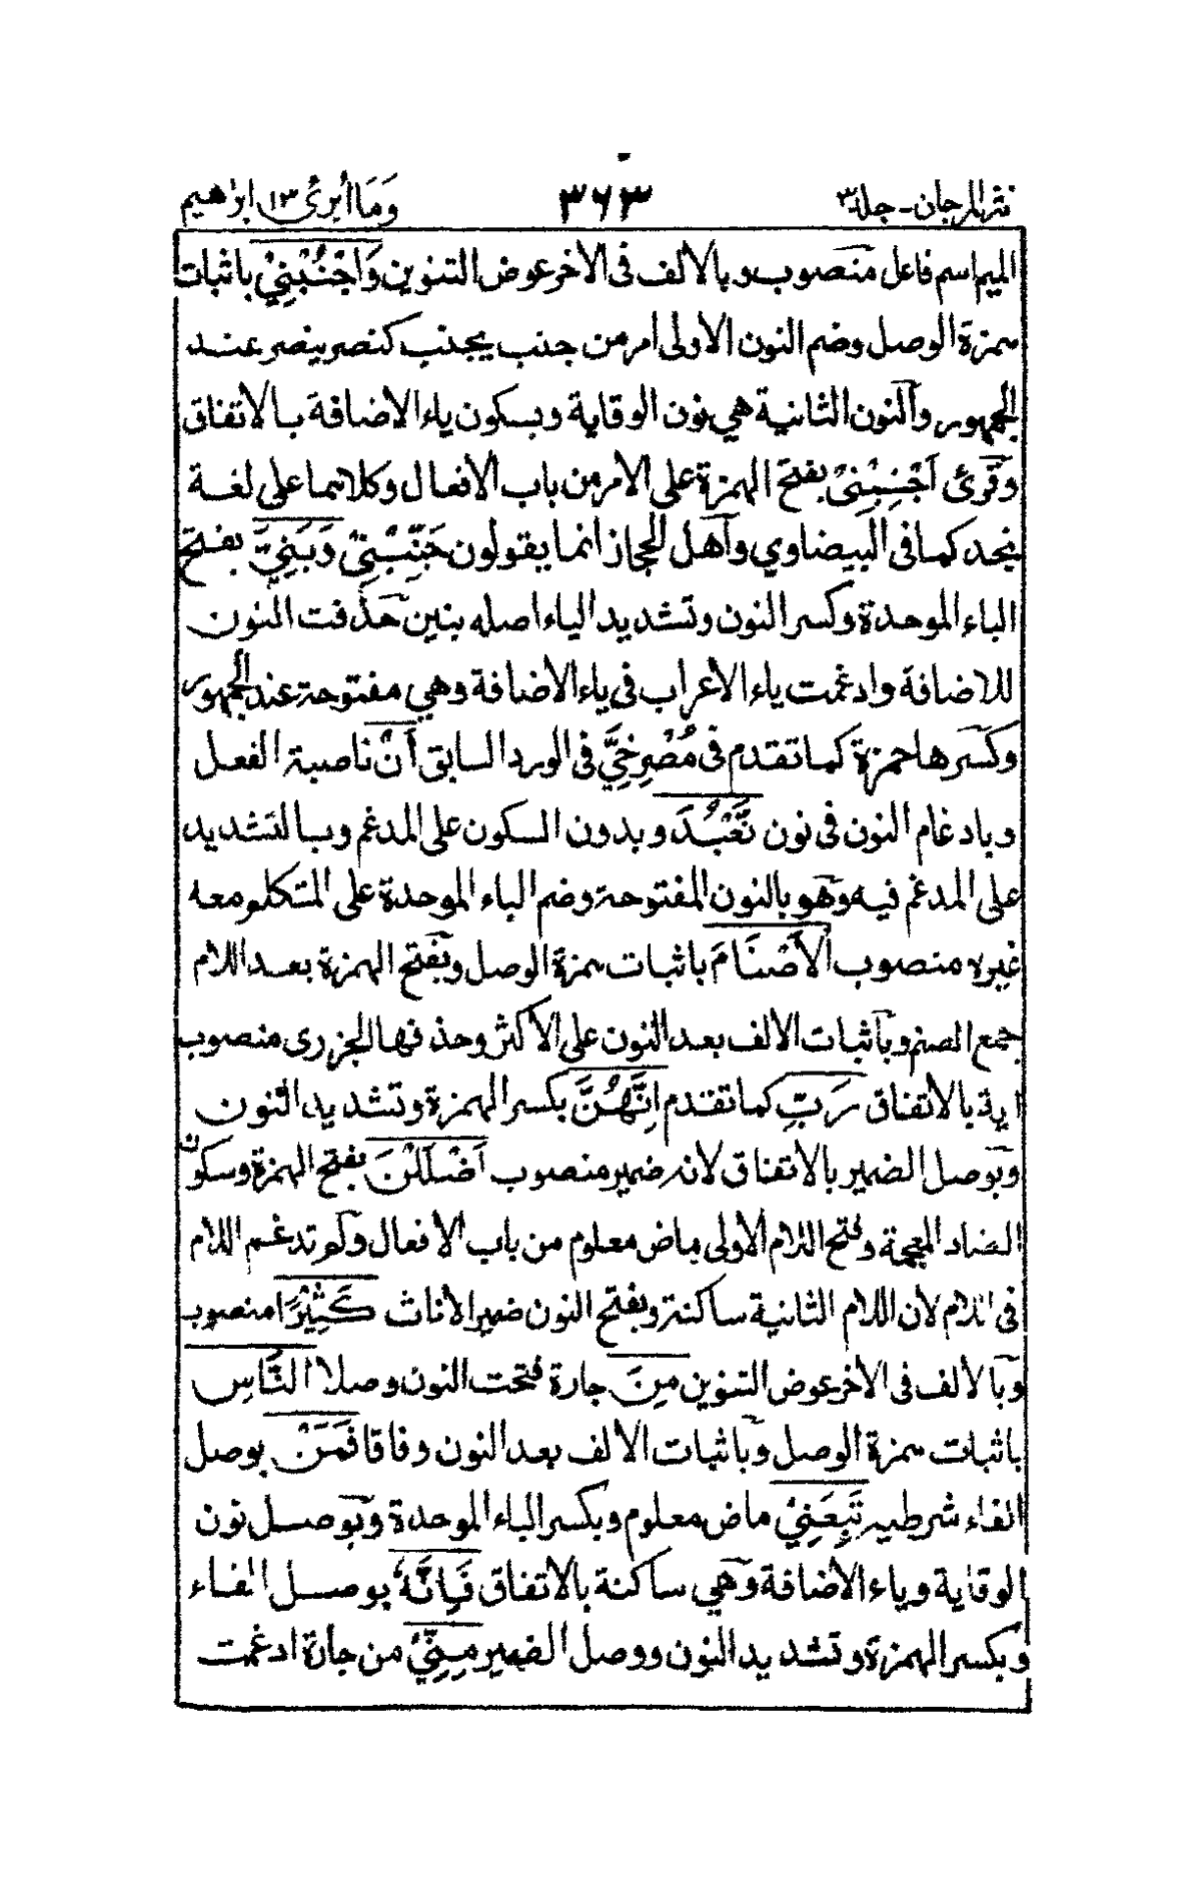 نثر المرجان ـ جلد ٣ ٣٦٣ وَمَا أُبرئ ١٣ ابراهيم
الميم اسم فاعل منصوب وبالالف فى الاخر عوض التنوين وَاجْنُبْنِيْ باثبات
همزة الوصل وضم النون الاولى امر من جنب يجنب كنصر ينصر عند
الجمهور والنون الثانية هي نون الوقاية وبسكون ياء الاضافة بالاتفاق
وقرئ اَجْنِبْنِيْ بفتح الهمزة على الامر من باب الافعال وكلاهما على لغة
نجد كما فى البيضاوي واهل الحجاز انما يقولون جَنِّبْنِيْ وَبَنِيَّ بفتح
الباء الموحدة وكسر النون وتشديد الياء اصله بنين حذفت النون
للاضافة وادغمت ياء الاعراب فى ياء الاضافة وهي مفتوحة عند الجمهور
وكسرها حمزة كما تقدم فى مُصْرِخِيَّ فى الورد السابق اَنْ ناصبة الفعل
وبادغام النون فى نون نَّعْبُدَ وبدون السكون على المدغم وبالتشديد
على المدغم فيه وهو بالنون المفتوحة وضم الباء الموحدة على المتكلم معه
غيره منصوب الْاَصْنَامَ باثبات همزة الوصل وبفتح الهمزة بعد اللام
جمع الصنم وباثبات الالف بعد النون على الاكثر وحذفها الجزرى منصوب
اية بالاتفاق رَبِّ كما تقدم اِنَّهُنَّ بكسر الهمزة وتشديد النون
وبوصل الضمير بالاتفاق لانه ضمير منصوب اَضْلَلْنَ بفتح الهمزة وسكون
الضاد المعجمة وفتح اللام الاولى ماض معلوم من باب الافعال ولم تدغم اللام
فى اللام لان اللام الثانية ساكنة وبفتح النون ضمير الاناث كَثِيْرًا منصوب
وبالالف فى الاخر عوض التنوين مِنَ جارة فتحت النون وصلا النَّاسِ
باثبات همزة الوصل وباثبات الالف بعد النون وفاقا فَمَنْ بوصل
الفاء شرطيه تَبِعَنِيْ ماض معلوم وبكسر الباء الموحدة وبوصل نون
الوقاية وياء الاضافة وهي ساكنة بالاتفاق فَاِنَّهٗ بوصل الفاء
وبكسر الهمزة وتشديد النون ووصل الضمير مِنِّيْ من جارة ادغمت